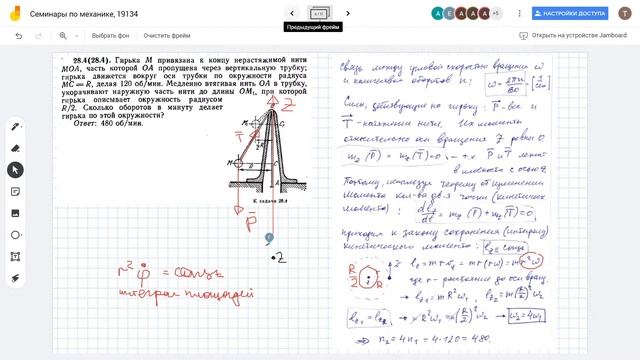 Семинары по механике, 19134
Предыдущий фрейм
НАСТРОЙКИ ДОСТУПА
Открыть на устройстве Jamboard
28.4(28.4). Гирька M привязана к концу нерастяжимой нити
MOA, часть которой OA пропущена через вертикальную трубку;
гирька движется вокруг оси трубки по окружности радиуса
MC = R, делая 120 об/мин. Медленно втягивая нить OA в трубку,
укорачивают наружную часть нити до длины OM₁, при которой
гирька описывает окружность радиусом
R/2. Сколько оборотов в минуту делает
гирька по этой окружности?
Ответ: 480 об/мин.
К задаче 28.4
r² φ̇ = const
интеграл площадей
Связь между угловой скоростью вращения ω
и количеством оборотов n: ω = 2πn/60
Силы, действующие на гирьку: P - вес и
T - натяжение нити. Их моменты
относительно оси вращения Z равны 0,
m_z(P) = m_z(T) = 0, т.к. P и T лежат
в плоскости с осью Z.
Поэтому, используя теорему об изменении
момента кол-ва дв-я точки (кинетич.
момента): dl_z/dt = m_z(P) + m_z(T) = 0,
приходим к закону сохранения (интегралу)
кинетического момента: l_z = const
где r - расстояние до оси вращ.
l_z1 = mR²ω₁, l_z2 = m(R/2)²ω₂
l_z1 = l_z2 → mR²ω₁ = m(R/2)²ω₂ → ω₂ = 4ω₁
⇒ n₂ = 4n₁ = 4·120 = 480.